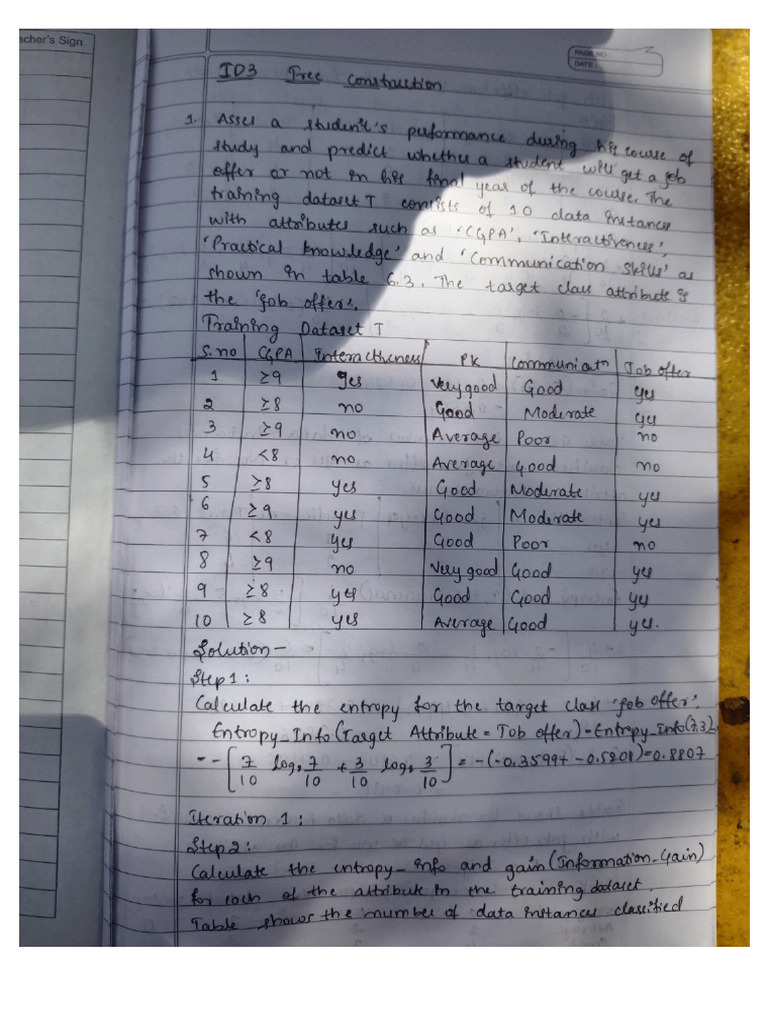 acher's Sign
PAGE NO :
DATE :
ID3 Tree Construction
1. Asses a student's performance during his course of
study and predict whether a student will get a job
offer or not in his final year of the course. The
training dataset T consists of 10 data instances
with attributes such as 'CGPA', 'Interactiveness',
'Practical knowledge' and 'Communication Skills' as
shown in table 6.3. The target class attribute is
the 'job offer'.
Training Dataset T
S.no CGPA Interactiveness PK Communicatn Job offer
1 ≥9 yes Very good Good yes
2 ≥8 no Good Moderate yes
3 ≥9 no Average Poor no
4 <8 no Average Good no
5 ≥8 yes Good Moderate yes
6 ≥9 yes Good Moderate yes
7 <8 yes Good Poor no
8 ≥9 no Very good Good yes
9 ≥8 yes Good Good yes
10 ≥8 yes Average Good yes.
Solution-
Step 1:
Calculate the entropy for the target class 'job offer'.
Entropy_Info(Target Attribute = Job offer) = Entropy_Info(7,3)
= -[7/10 log₂ 7/10 + 3/10 log₂ 3/10] = -(-0.3599 + -0.5208) = 0.8807
Iteration 1 :
Step 2:
Calculate the entropy_info and gain (Information_Gain)
for each of the attribute in the training dataset.
Table shows the number of data instances classified